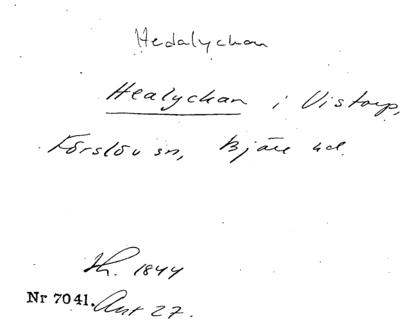 Hedalychan
Healychan i Vistorp,
Förslöv sn, Bjäre hd.
1844
Nr 7041. Ant 27.